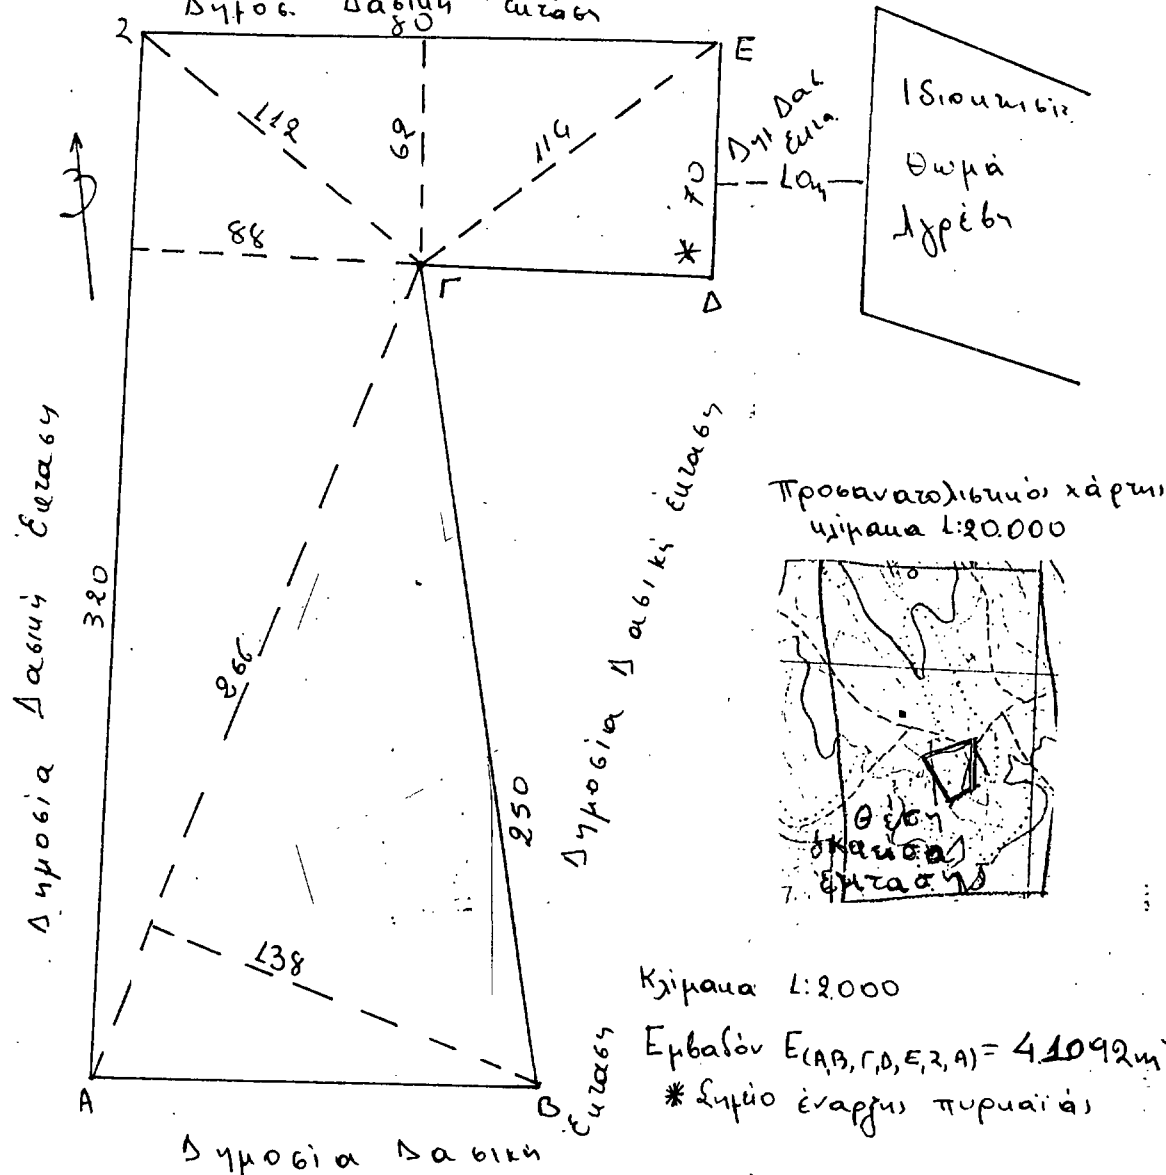 Δημοσ. Δασική έκταση
80
Ζ
Ε
112
69
114
70
Δημ. Δασ.
έκτα.
10m
Ιδιοκτησία
Θωμά
Αγρέβη
88
*
Γ
Δ
Δημοσία Δασική Έκταση
320
266
250
Δημοσία Δασική έκταση
138
Α
Β
Δημοσία Δασική
Έκταση
Προσανατολιστικός χάρτης
κλίμακα 1:20.000
Θέση
έκτασης
Κλίμακα 1:2000
Εμβαδόν Ε(Α,Β,Γ,Δ,Ε,Ζ,Α)= 41092m
* Σημείο έναρξης πυρκαϊάς